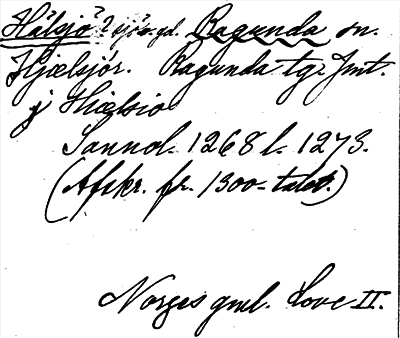 Hälsjö? sjö. gd. Ragunda sn.
Hjælsjor. Ragunda tg. Jmt.
j Hiælsio
Sannol. 1268 l. 1273.
(Afskr. fr. 1300-talet.)
Norges gml. Love II.